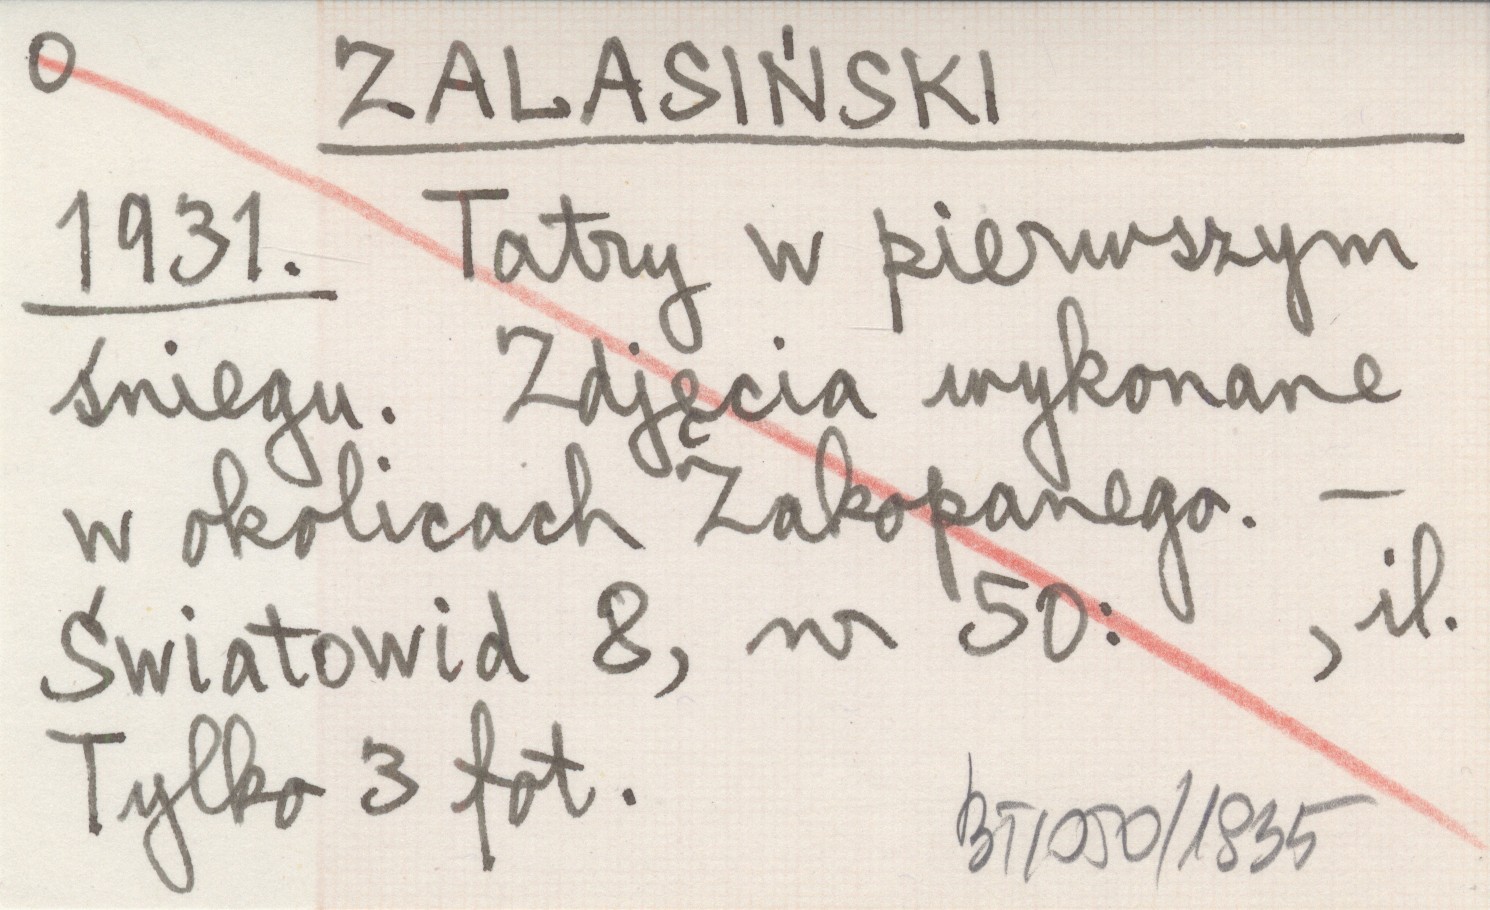 O ZALASIŃSKI
1931. Tatry w pierwszym
śniegu. Zdjęcia wykonane
w okolicach Zakopanego. —
Światowid 8, nr 50: , il.
Tylko 3 fot.
BT/050/1835